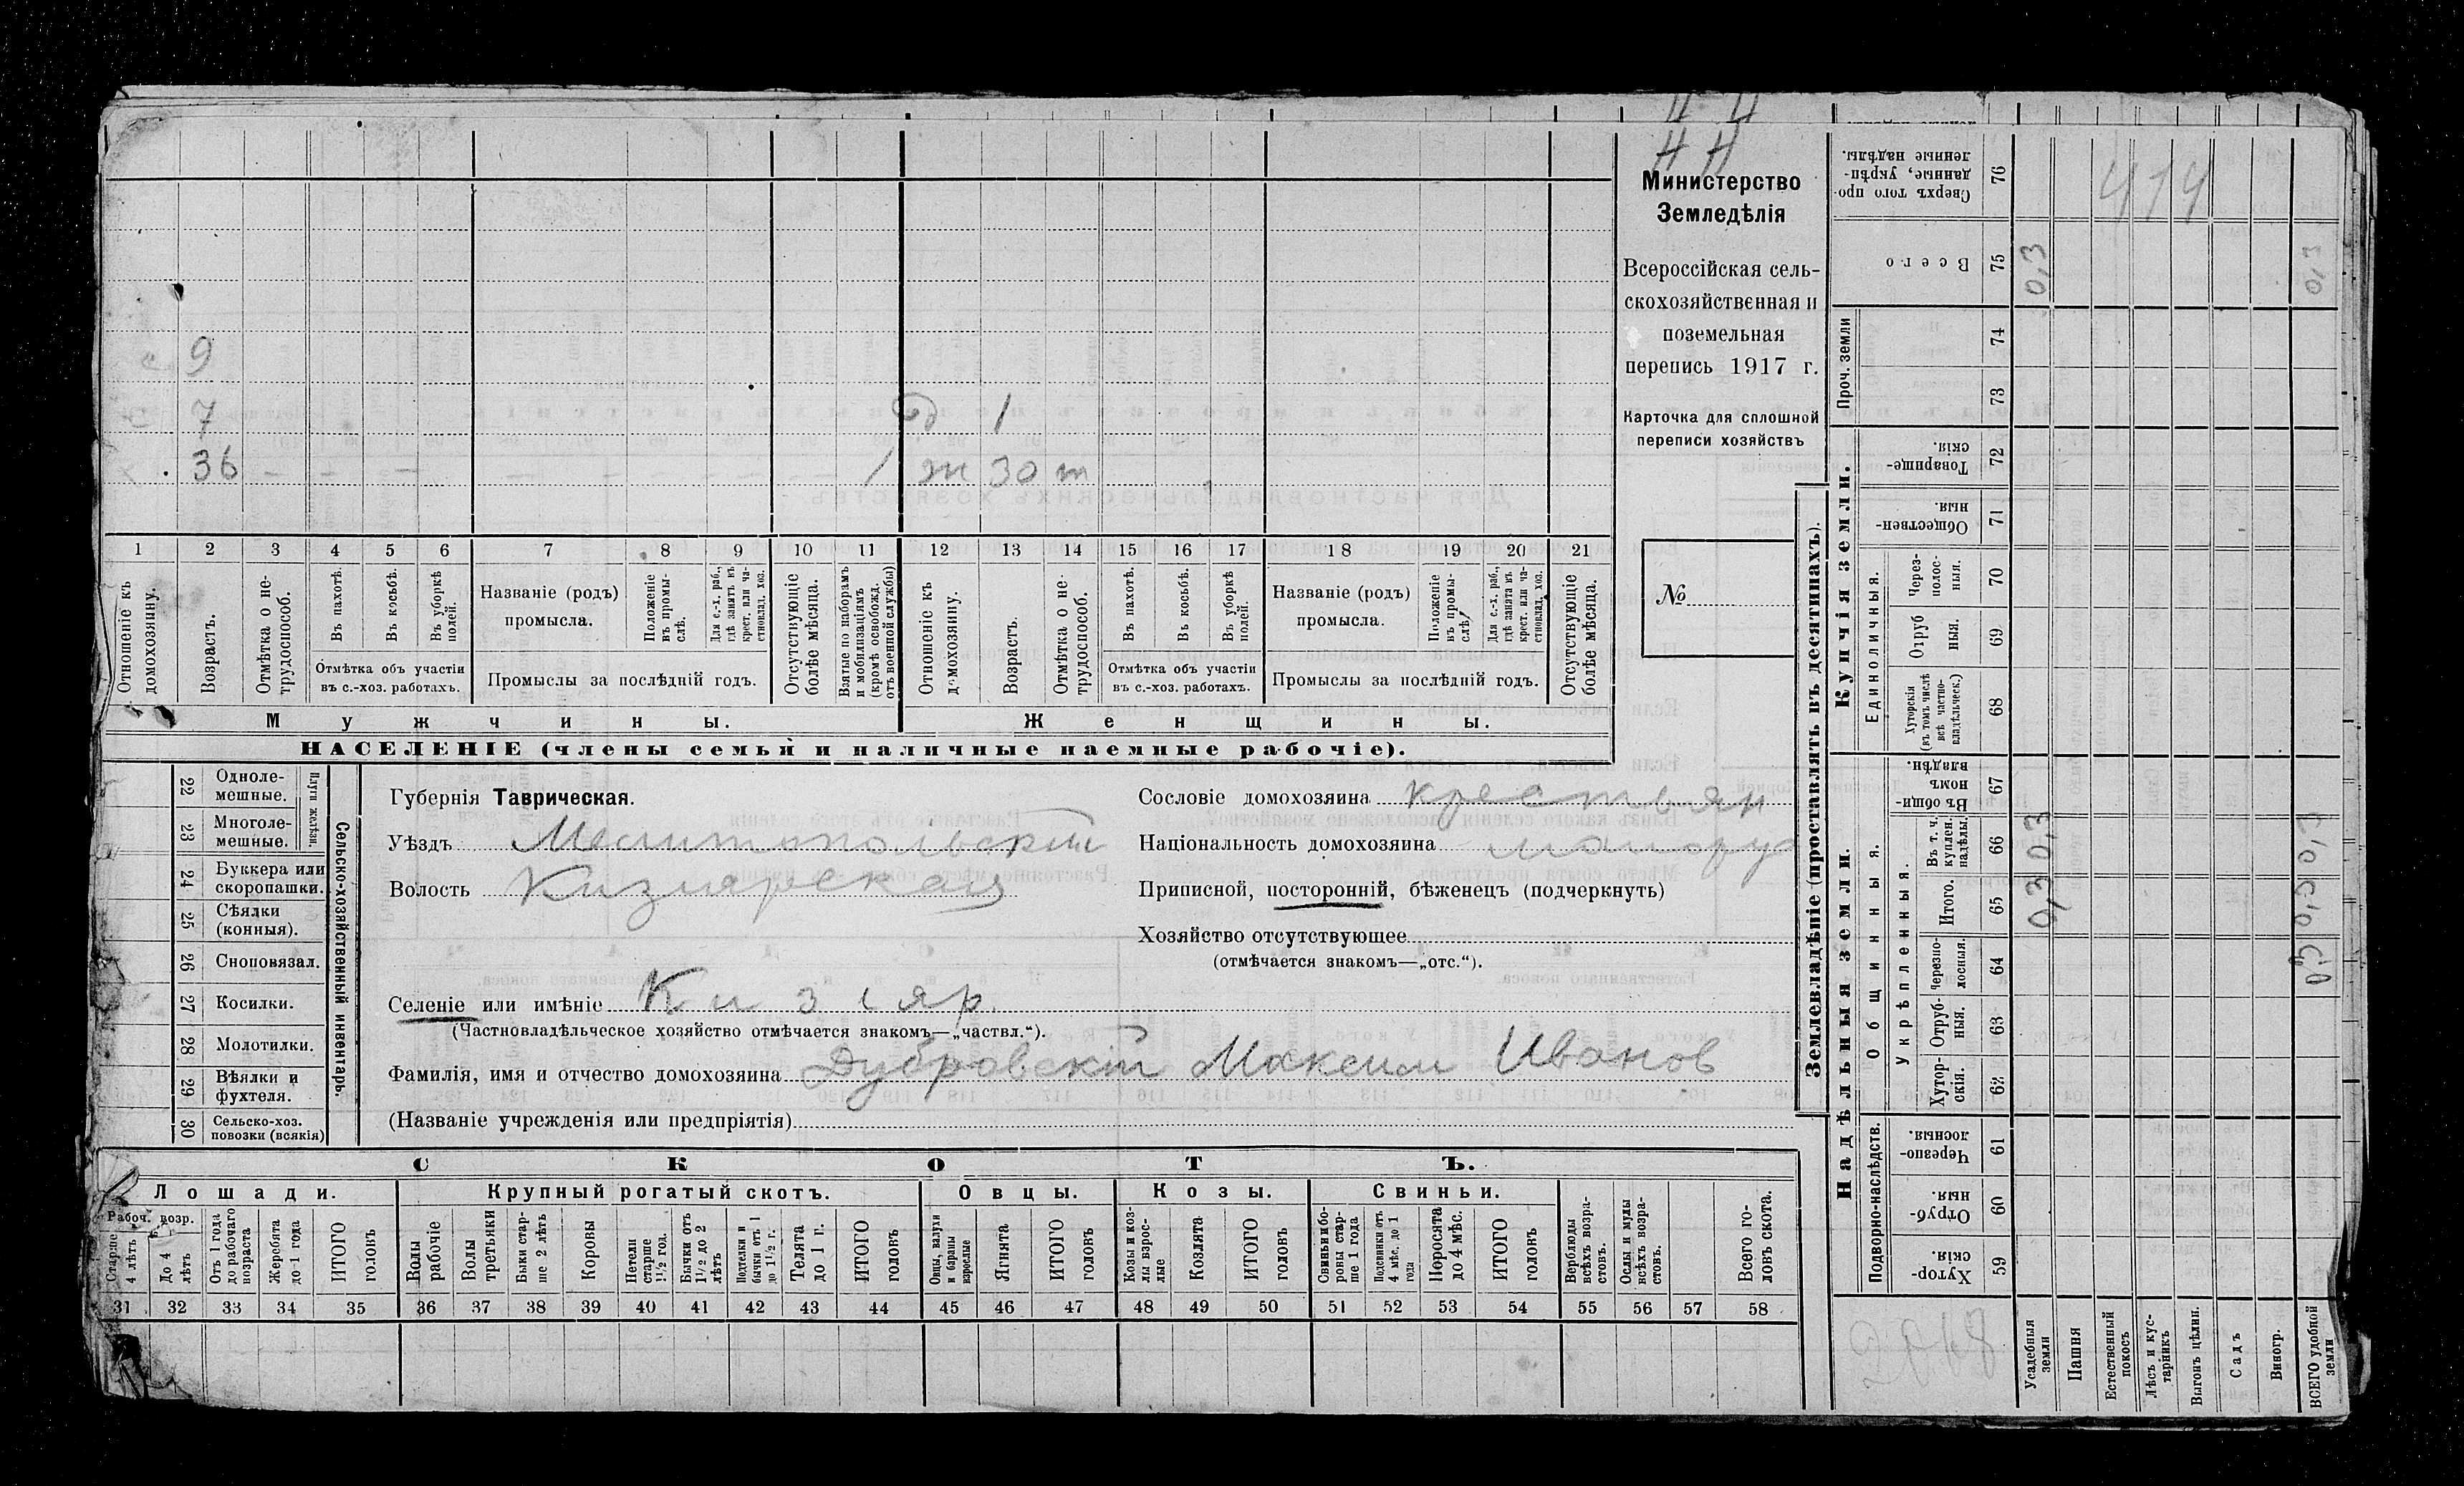 НН
Министерство
Земледѣлія
Всероссійская сель-
скохозяйственная и
поземельная
перепись 1917 г.
Карточка для сплошной
переписи хозяйствъ
№
с 9
с 7 д 1
х . 36 — — — — — — — — 1 ж 30 т
1 2 3 4 5 6 7 8 9 10 11 12 13 14 15 16 17 18 19 20 21
Отношеніе къ домохозяину.
Возрастъ.
Отмѣтка о не-трудоспособ.
Въ пахотѣ.
Въ косьбѣ.
Въ уборкѣ полей.
Отмѣтка объ участіи въ с.-хоз. работахъ.
Названіе (родъ) промысла.
Положеніе въ промы-слѣ.
Для с.-х. раб., гдѣ занятъ въ крест. или ча-стновлад. хоз.
Промыслы за послѣдній годъ.
Отсутствующіе болѣе мѣсяца.
Взятые по наборамъ и мобилизаціямъ (кромѣ освобожд. отъ военной службы)
Отношеніе къ домохозяину.
Возрастъ.
Отмѣтка о не-трудоспособ.
Въ пахотѣ.
Въ косьбѣ.
Въ уборкѣ полей.
Отмѣтка объ участіи въ с.-хоз. работахъ.
Названіе (родъ) промысла.
Положеніе въ промы-слѣ
Для с.-х. раб., гдѣ занята въ крест. или ча-стновлад. хоз.
Промыслы за послѣдній годъ.
Отсутствующіе болѣе мѣсяца.
Мужчины. Женщины.
НАСЕЛЕНІЕ (члены семьи и наличные наемные рабочіе).
Сельско-хозяйственный инвентарь.
Плуги желѣзн.
22 Одноле-мешные.
23 Многоле-мешные.
24 Буккера или скоропашки.
25 Сѣялки (конныя).
26 Сноповязал.
27 Косилки.
28 Молотилки.
29 Вѣялки и фухтеля.
30 Сельско-хоз. повозки (всякія)
Губернія Таврическая.
Уѣздъ Мелитопольскій
Волость Кизлярская
Селеніе или имѣніе Кизляр.
(Частновладѣльческое хозяйство отмѣчается знакомъ—„частвл.“).
Фамилія, имя и отчество домохозяина Дубровскій Максим Иванов
(Названіе учрежденія или предпріятія)
Сословіе домохозяина крестьян
Національность домохозяина малорус
Приписной, посторонній, бѣженецъ (подчеркнуть)
Хозяйство отсутствующее
(отмѣчается знакомъ—„отс.“).
СКОТЪ.
Лошади. Крупный рогатый скотъ. Овцы. Козы. Свиньи.
Рабоч. возр.
Старше 4 лѣтъ
До 4 лѣтъ
Отъ 1 года до рабочаго возраста
Жеребята до 1 года
ИТОГО головъ
Волы рабочіе
Волы третьяки
Быки стар-ше 2 лѣтъ
Коровы
Нетели старше 1½ год.
Бычки отъ 1½ до 2 лѣтъ
Подтелки и бычки отъ 1 до 1½ г.
Телята до 1 г.
ИТОГО головъ
Овцы, валухи и бараны взрослые
Ягнята
ИТОГО головъ
Козы и коз-лы взрос-лые
Козлята
ИТОГО головъ
Свиньи и бо-ровы стар-ше 1 года
Подсвинки отъ 4 мѣс. до 1 года
Поросята до 4 мѣс.
ИТОГО головъ
Верблюды всѣхъ возра-стовъ.
Ослы и мулы всѣхъ возра-стовъ.
Всего го-ловъ скота.
31 32 33 34 35 36 37 38 39 40 41 42 43 44 45 46 47 48 49 50 51 52 53 54 55 56 57 58
Землевладѣніе (проставлять въ десятинахъ).
Надѣльныя земли.
Купчія земли.
Проч. земли
Подворно-наслѣдств.
Общинныя.
Укрѣпленныя.
Единоличныя.
Сверхъ того про-данные, укрѣп-ленные надѣлы. 76 474
Всего 75 0,3 0,3
74
73
Товарище-скія. 72
Обществен-ныя 71
Через-полос-ныя. 70
Отруб ныя. 69
Хуторскія (въ томъ числѣ всѣ частно-владѣльческ.) 68
Въ общин-номъ владѣн. 67
Въ т. ч. куплен. надѣлы. 66 0,3 0,3
Итого. 65 0,3 0,3
Черезпо-лосныя. 64
Отруб-ныя. 63
Хутор-скія. 62
Черезпо-лосныя. 61
Отруб-ныя 60
Хутор-скія. 59
Усадебныя земли
Пашня
Естественный покосъ
Лѣсъ и кус-тарникъ
Выгонъ цѣлин.
Садъ
Виногр.
ВСЕГО удобной земли